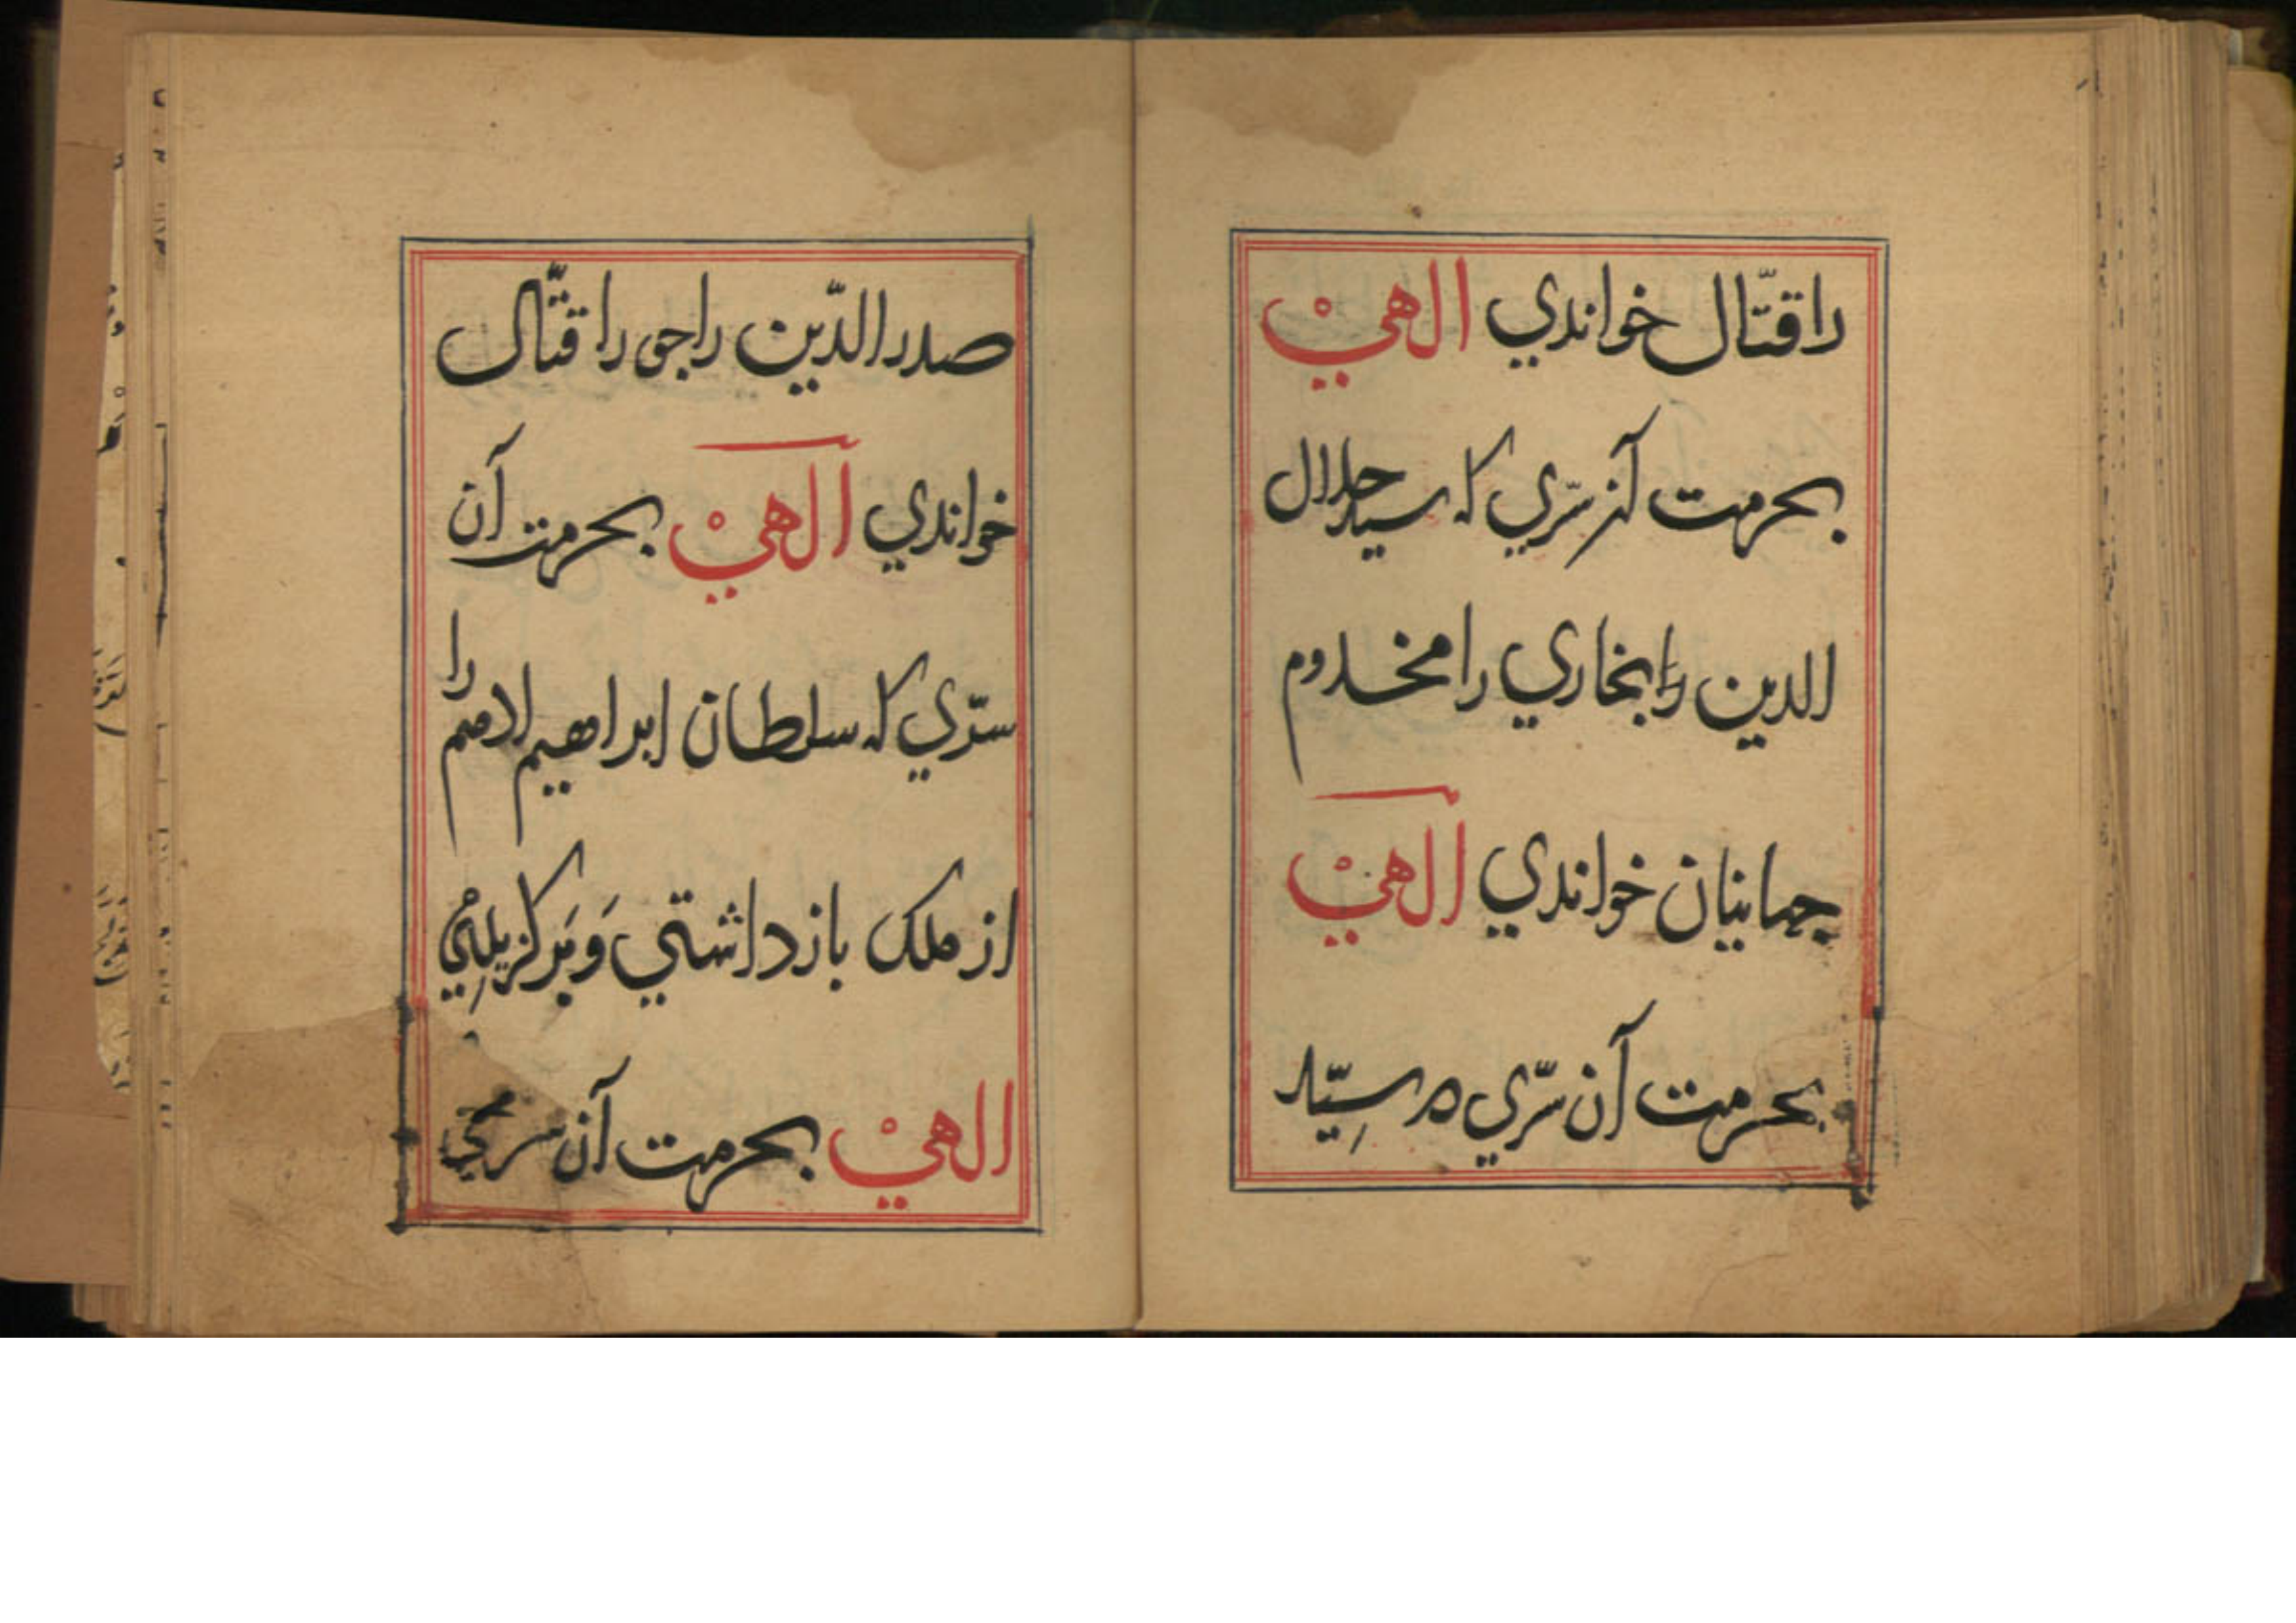 را قتّال خواندي الهيْ
بحرمت آنسرّي كه سيد جلال
الدين را بخاري را مخدوم
جهانيان خواندي الٓهيْ
بحرمت آن سرّي كه سِيّد
صدر الدّين راجی را قتّال
خواندي الٓهيْ بحرمت آن
سرّي كه سلطان ابراهيم ادهم را
از ملک باز داشتي وَبَركزيدي
الهيْ بحرمت آن سرّي